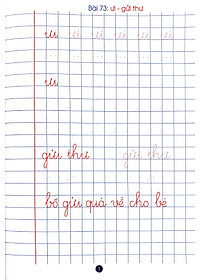 Bài 73: ưi - gửi thư
ưi ưi ưi ưi ưi ưi
ưi
gửi thư gửi thư
bố gửi quà về cho bé